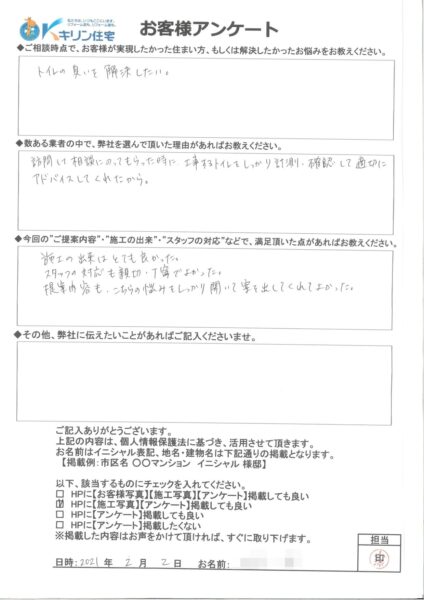 私たちは、いつもここにいます。
リフォーム造り、リフォーム創り。
OKキリン住宅
お客様アンケート
◆ご相談時点で、お客様が実現したかった住まい方、もしくは解決したかったお悩みをお教えください。
トイレの臭いを解決したい。
◆数ある業者の中で、弊社を選んで頂いた理由があればお教えください。
訪問して相談にのってもらった時に、工事するトイレをしっかり計測、確認して適切に
アドバイスしてくれたから。
◆今回の"ご提案内容"・"施工の出来"・"スタッフの対応"などで、満足頂いた点があればお教えください。
施工の出来はとても良かった。
スタッフの対応も親切・丁寧でよかった。
提案内容も、こちらの悩みをしっかり聞いて案を出してくれてよかった。
◆その他、弊社に伝えたいことがあればご記入くださいませ。
ご記入ありがとうございます。
上記の内容は、個人情報保護法に基づき、活用させて頂きます。
お名前はイニシャル表記、地名・建物名は下記通りの掲載となります。
【掲載例:市区名 〇〇マンション イニシャル 様邸】
以下、該当するものにチェックを入れてください。
□ HPに【お客様写真】【施工写真】【アンケート】掲載しても良い
☑ HPに【施工写真】【アンケート】掲載しても良い
□ HPに【アンケート】掲載しても良い
□ HPに【アンケート】掲載したくない
※掲載した内容はお声をかけて頂ければ、すぐに取り下げます。
担当
印
日時:2021年 2月 2日 お名前: